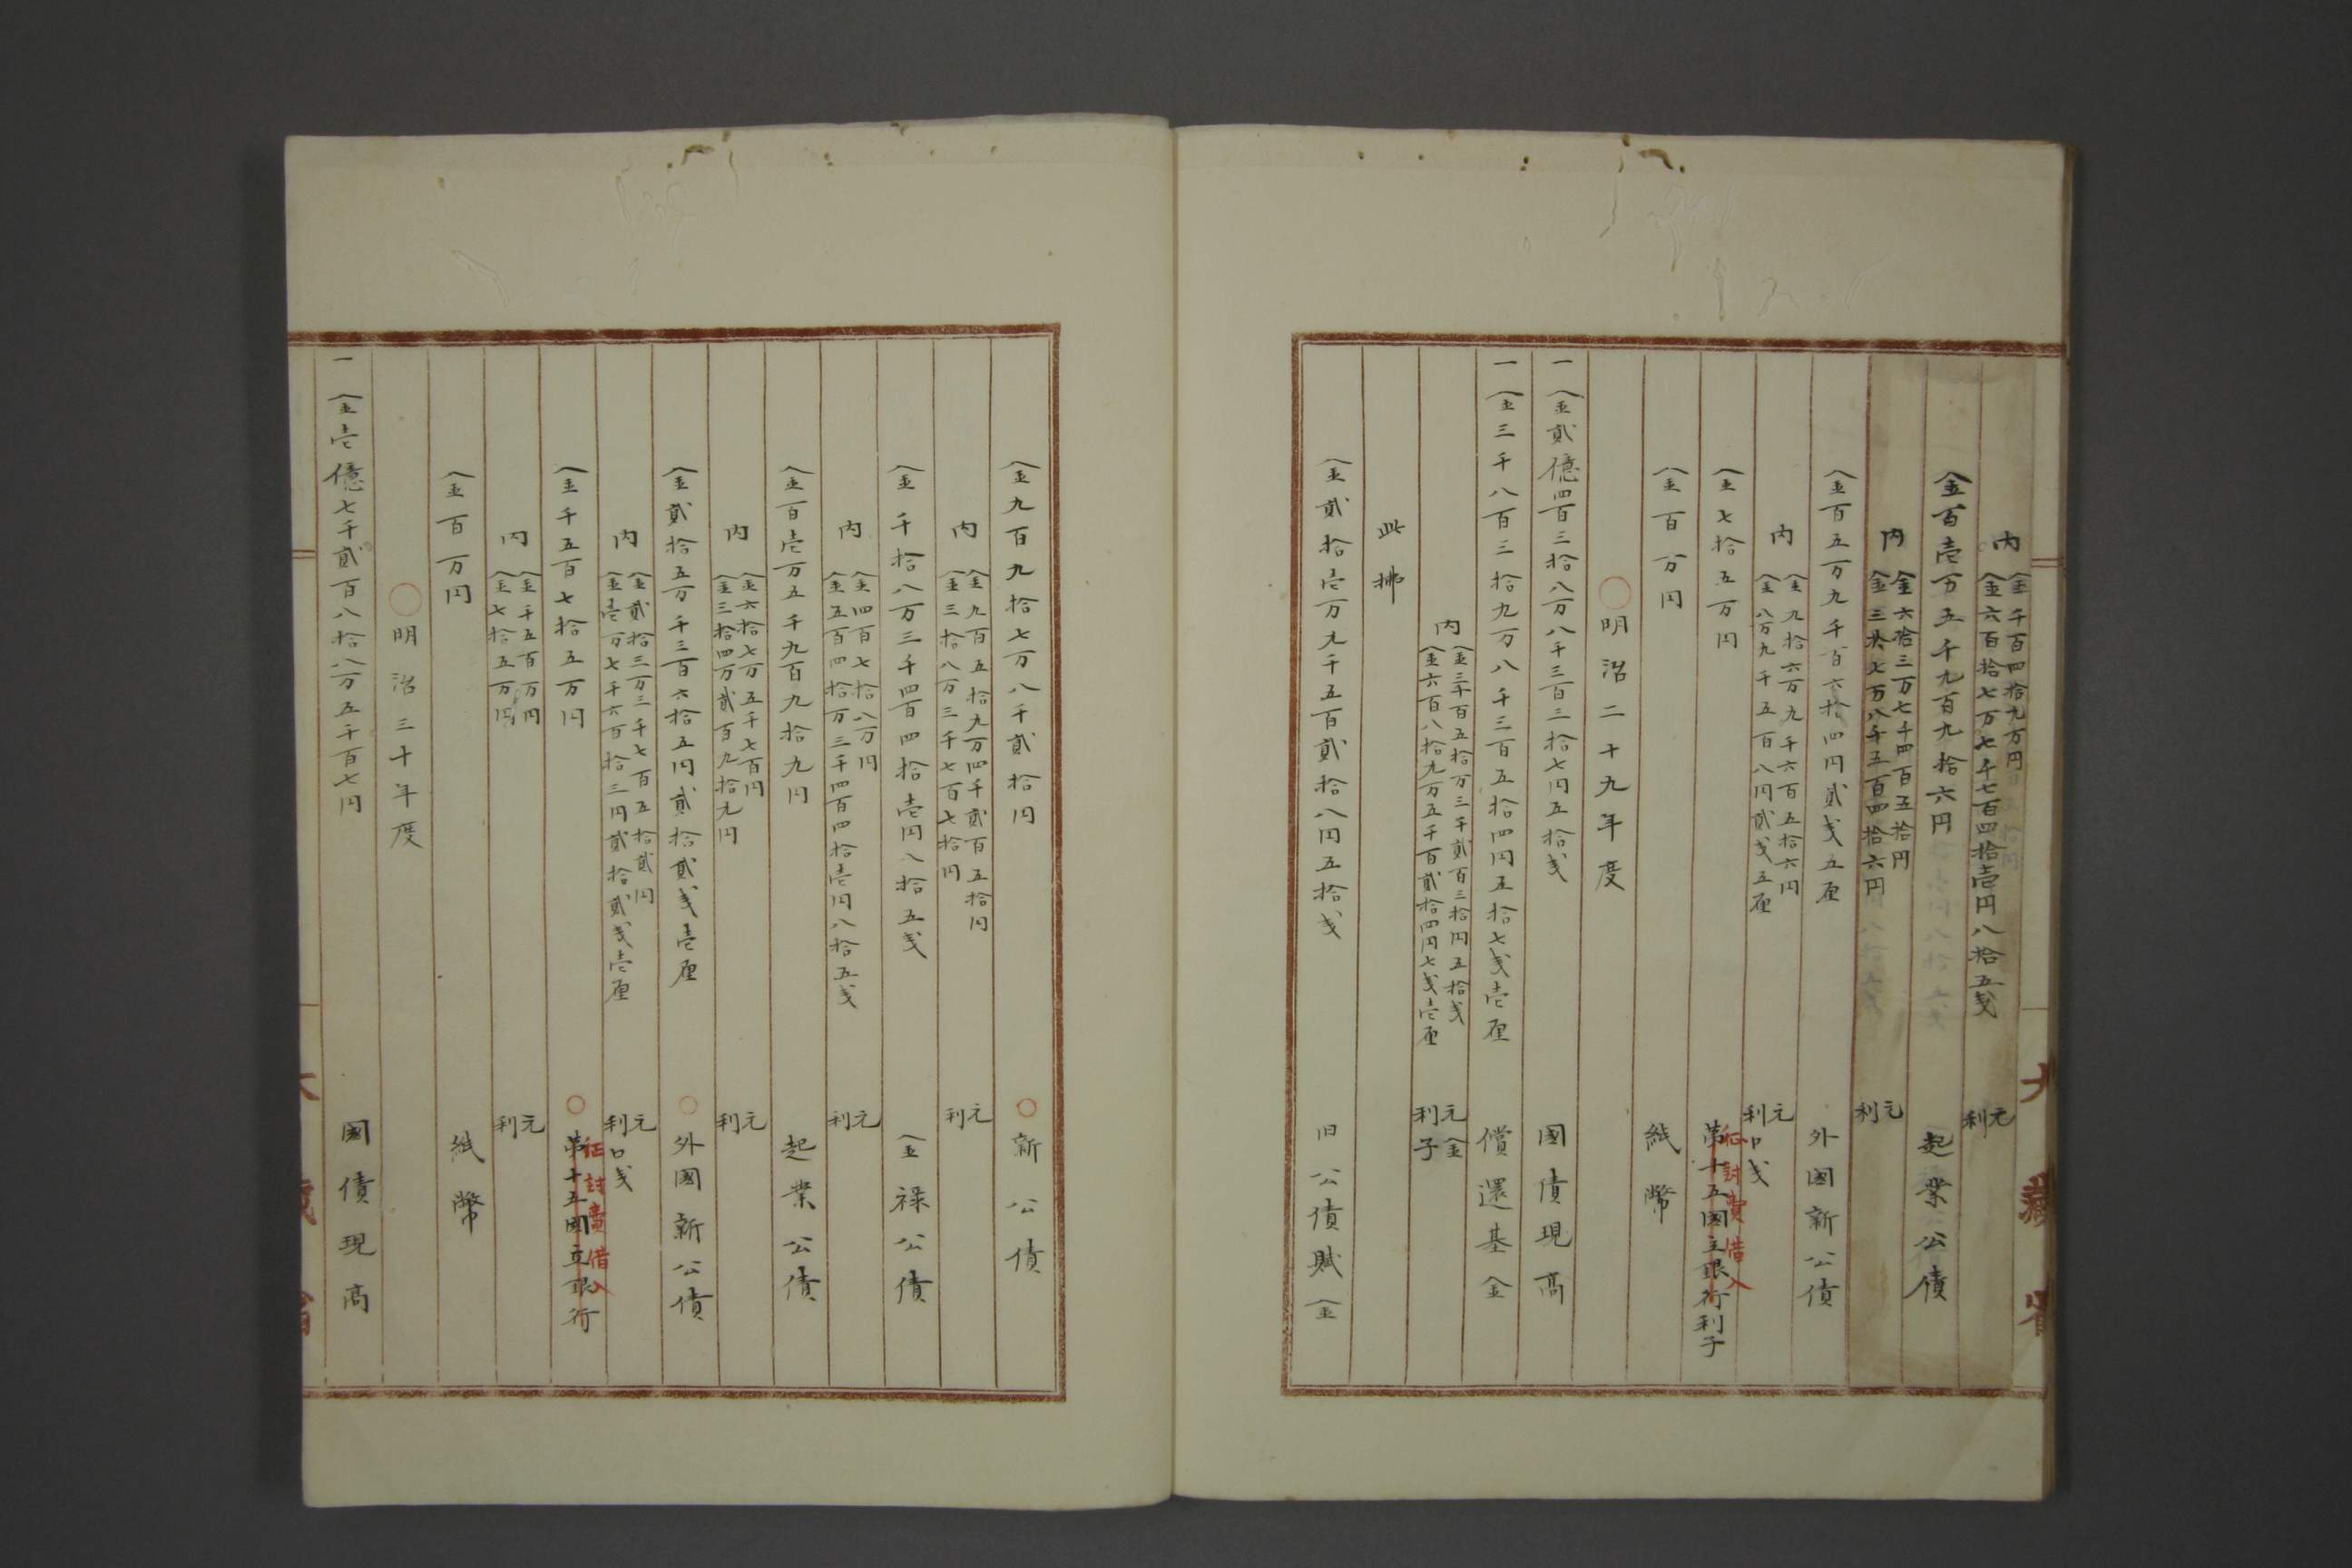 内 金千百四拾九万円 元
金六百拾七万七千七百四拾壱円八拾五戋 利
金百壱万五千九百九拾六円 起業公債
内 金六拾三万七千四百五拾円 元
金三拾七万八千五百四拾六円 利
金百五万九千百六拾四円貳戋五厘 外國新公債
内 金九拾六万九千六百五拾六円 元
金八万九千五百八円貳戋五厘 利
口戋
金七拾五万円 第十五國立銀行利子
征討費借入
金百万円 紙幣
○明治二十九年度
一金貳億四百三拾八万八千三百三拾七円五拾戋 國債現高
一金三千八百三拾九万八千三百五拾四円五拾七戋壱厘 償還基金
内 金三千百五拾万三千貳百三拾円五拾戋 元金
金六百八拾九万五千百貳拾四円七戋壱厘 利子
此拂
金貳拾壱万九千五百貳拾八円五拾戋 旧公債賦金
大藏省
金九百九拾七万八千貳拾円 ○新公債
内 金九百五拾九万四千貳百五拾円 元
金三拾八万三千七百七拾円 利
金千拾八万三千四百四拾壱円八拾五戋 金禄公債
内 金四百七拾八万円 元
金五百四拾万三千四百四拾壱円八拾五戋 利
金百壱万五千九百九拾九円 起業公債
内 金六拾七万五千七百円 元
金三拾四万貳百九拾九円 利
金貳拾五万千三百六拾五円貳拾貳戋壱厘 ○外國新公債
内 金貳拾三万三千七百五拾貳円 元
金壱万七千六百拾三円貳拾貳戋壱厘 利
口戋
金千五百七拾五万円 ○第十五國立銀行
征討費借入
内 金千五百万円 元
金七拾五万円 利
金百万円 紙幣
○明治三十年度
一金壱億七千貳百八拾八万五千百七円 國債現高